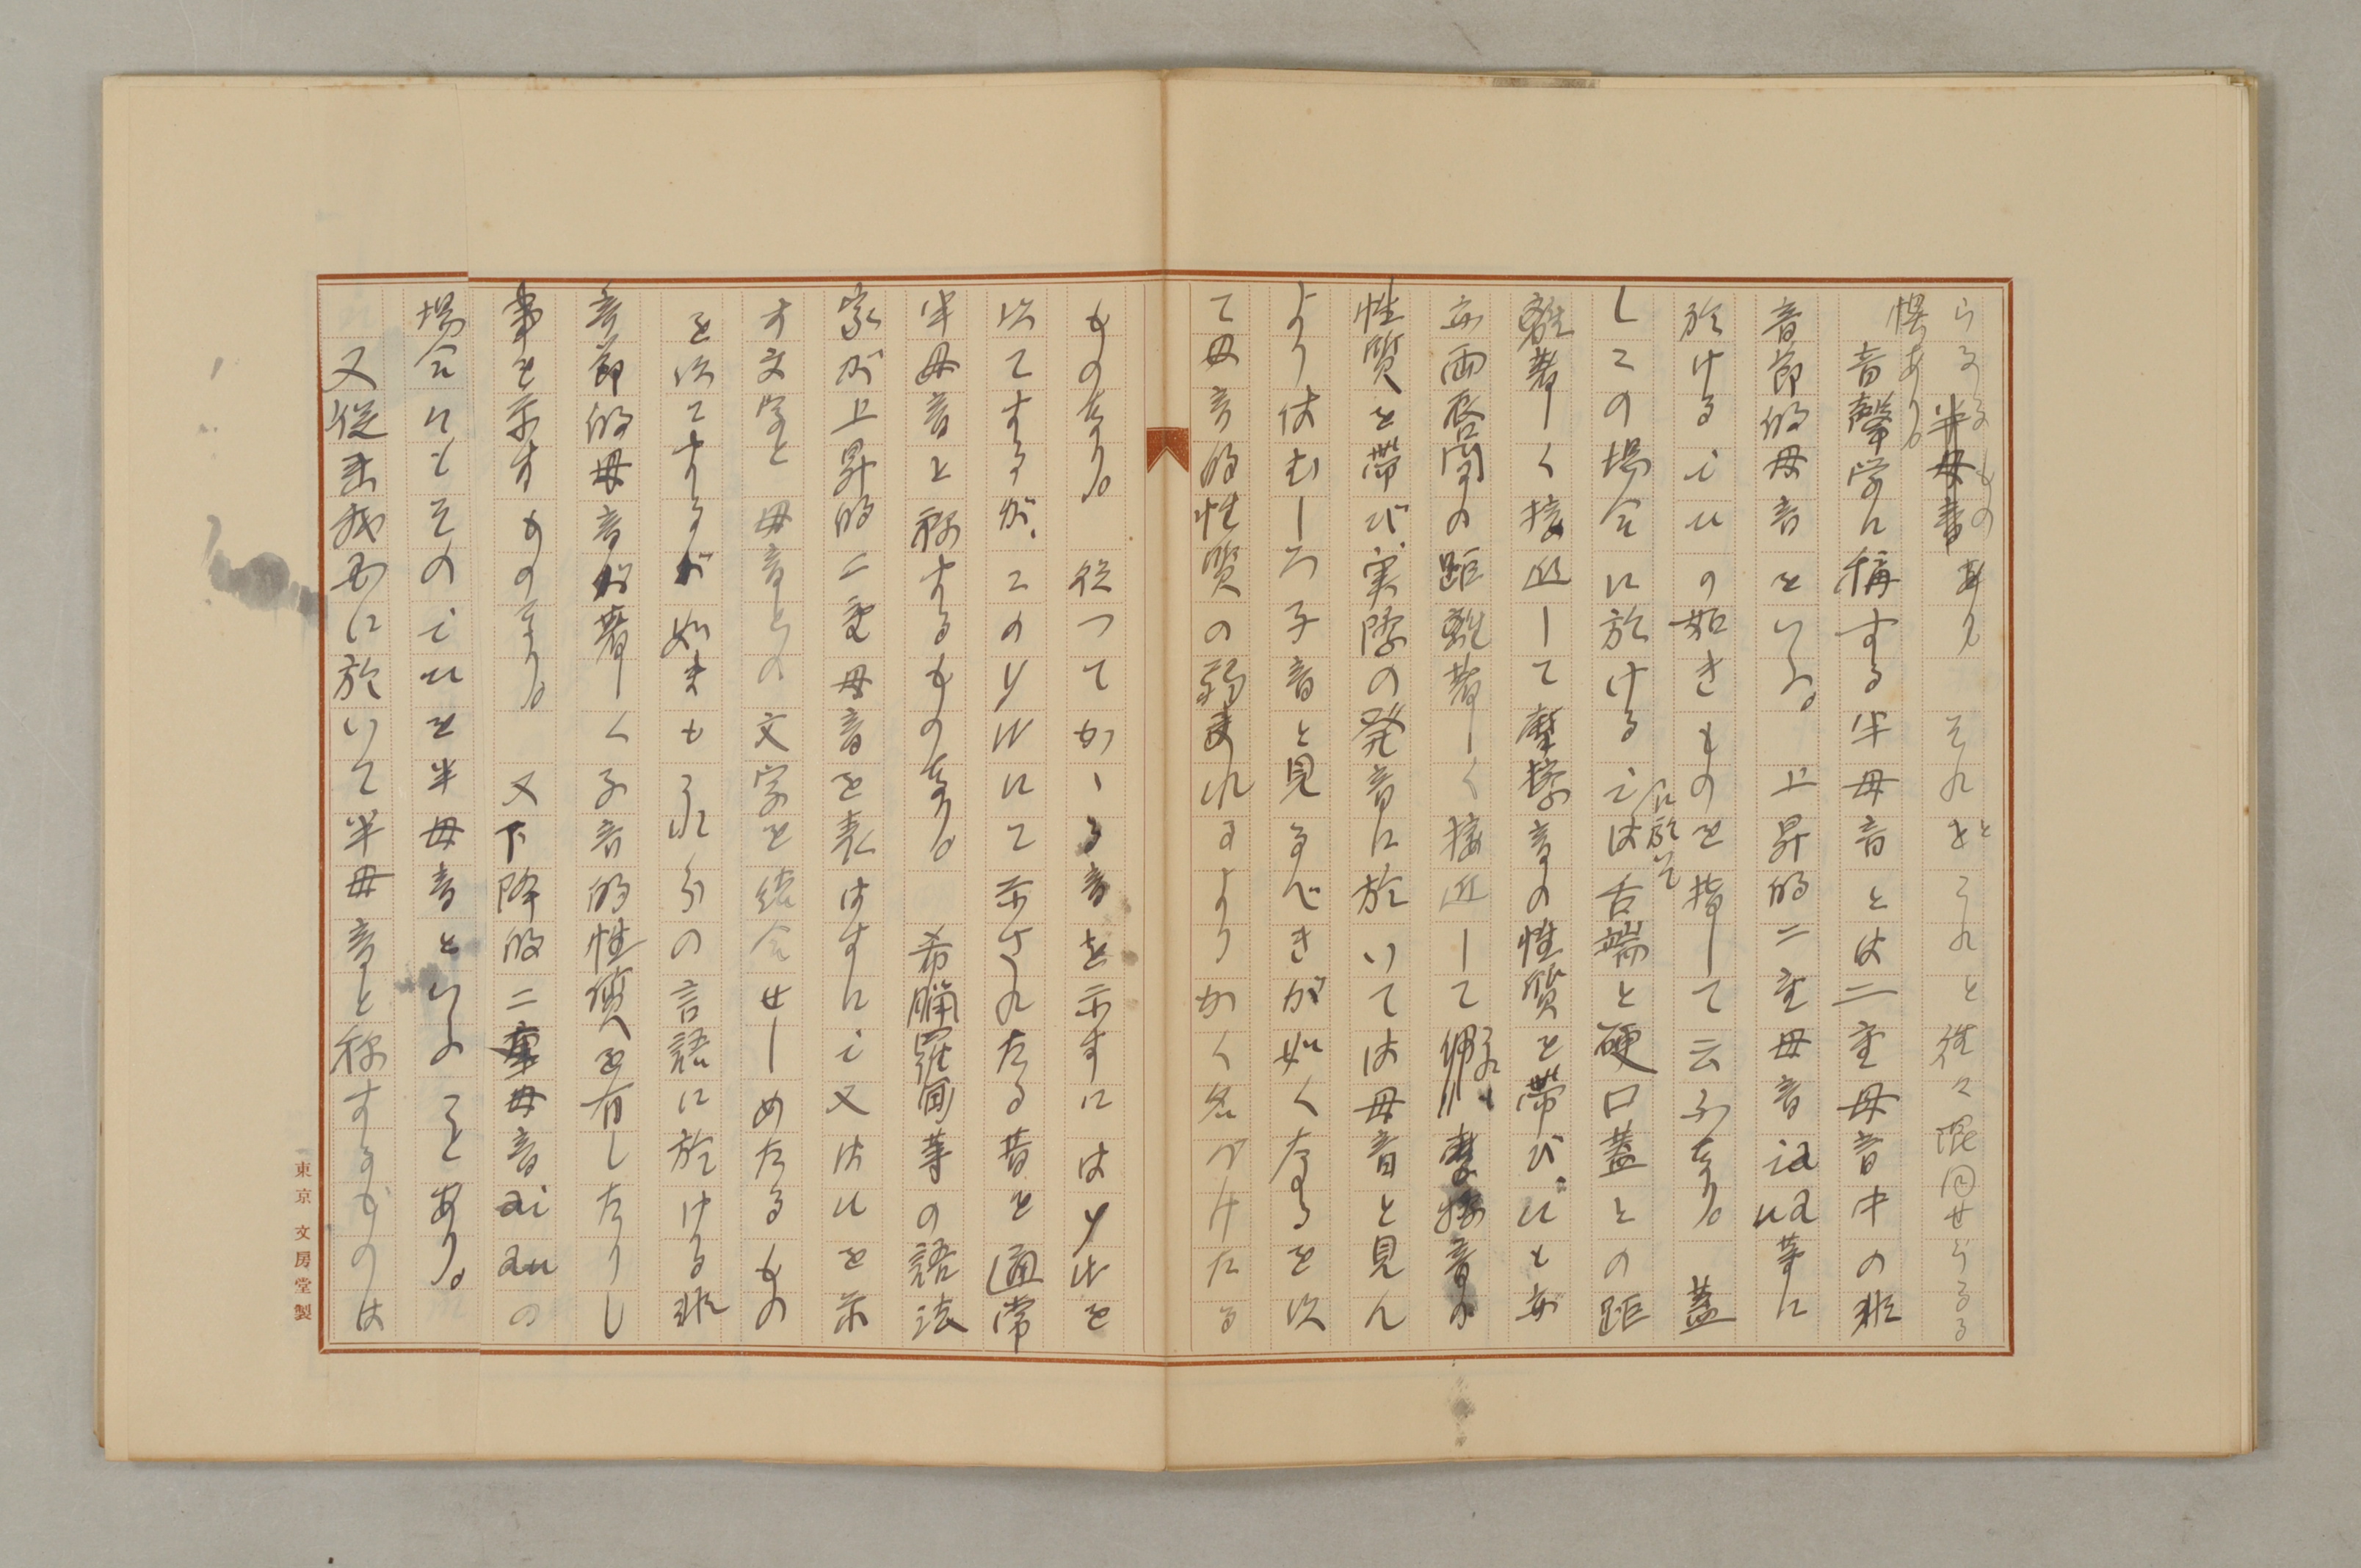 らるるものあり それとこれと往々混同せらるる
惧あり。
音聲学に稱する半母音とは二重母音中の非
音節的母音をいふ。上昇的二重母音ia ua等に
於けるiuの如きものを指して云ふなり。蓋
しこの場合に於けるiは舌端と硬口蓋との距
離著しく接近して摩擦音の性質を帯び、uも亦
両唇間の距離著しく接近して摩擦音の
性質を帯び、実際の発音に於いては母音と見ん
よりはむしろ子音と見るべきが如くなるを以
て母音的性質の弱まれるよりかく名づけたる
ものなり。従つてかゝる音を示すにはy wを
以てするが、このy wにて示されたる音を通常
半母音と称するものなり。希臘羅甸等の語法
家が上昇的二重母音を表はすにi又はuを示
す文字と母音との文字を結合せしめたるもの
を以てするが如きもこれらの言語に於ける非
音節的母音が著しく子音的性質を有したりし
事を示すものなり。又下降的二重母音ai auの
場合にもそのi uを半母音といふことあり。
又従来我国に於いて半母音と称するものは
東京 文房堂製